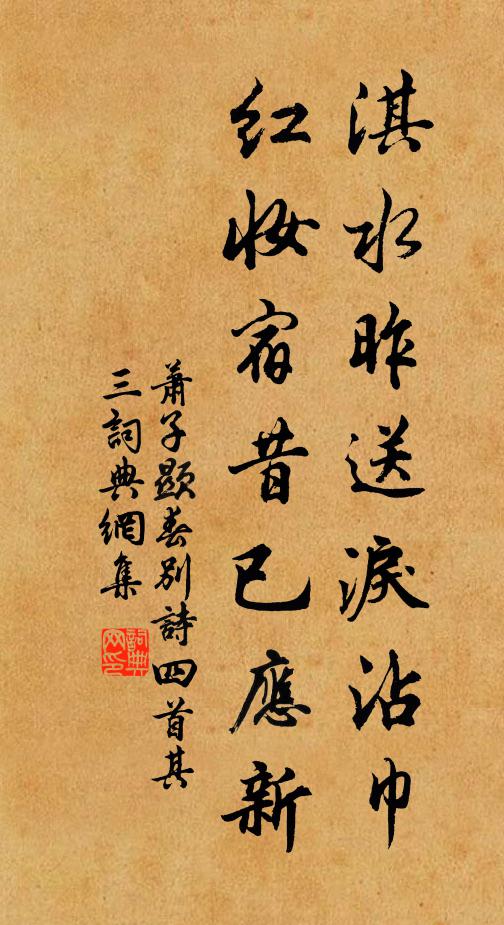 淇水昨送淚沾巾
红妝宿昔已應新
蕭子顯春别詩四首其
三詞典網集
詞典网印